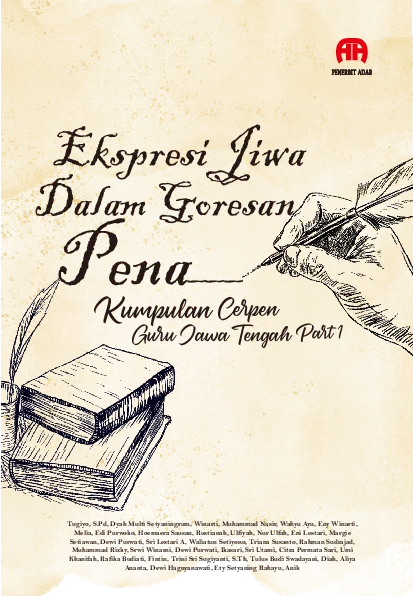 PENERBIT ADAB
Ekspresi Jiwa
Dalam Goresan
Pena
Kumpulan Cerpen
Guru Jawa Tengah Part 1
Tugiyo, S.Pd, Dyah Mulfi Setyaningrum, Winarti, Muhammad Nasir, Wahyu Ayu, Eny Winarti,
Melia, Edi Purwoko, Hoemaera Sausan, Rustianah, Ulfiyah, Nur Ulfah, Eni Lestari, Margie
Setiawan, Dewi Purwati, Sri Lestari A, Waliatun Setiyono, Triana Susanto, Rahman Sudrajad,
Muhammad Rizky, Srwi Winarni, Dewi Purwati, Ikasari, Sri Utami, Citra Permata Sari, Umi
Khanifah, Rafika Budiati, Fintin, Trini Sri Sugiyanti, S.Th, Tulus Budi Swadayani, Diah, Aliya
Ananta, Dewi Hagnyanawati, Ety Setyaning Rahayu, Anik